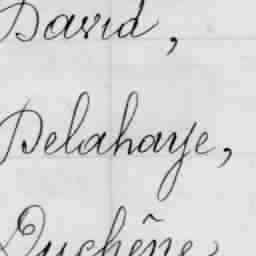 David,
Delahaye,
Duchêne,